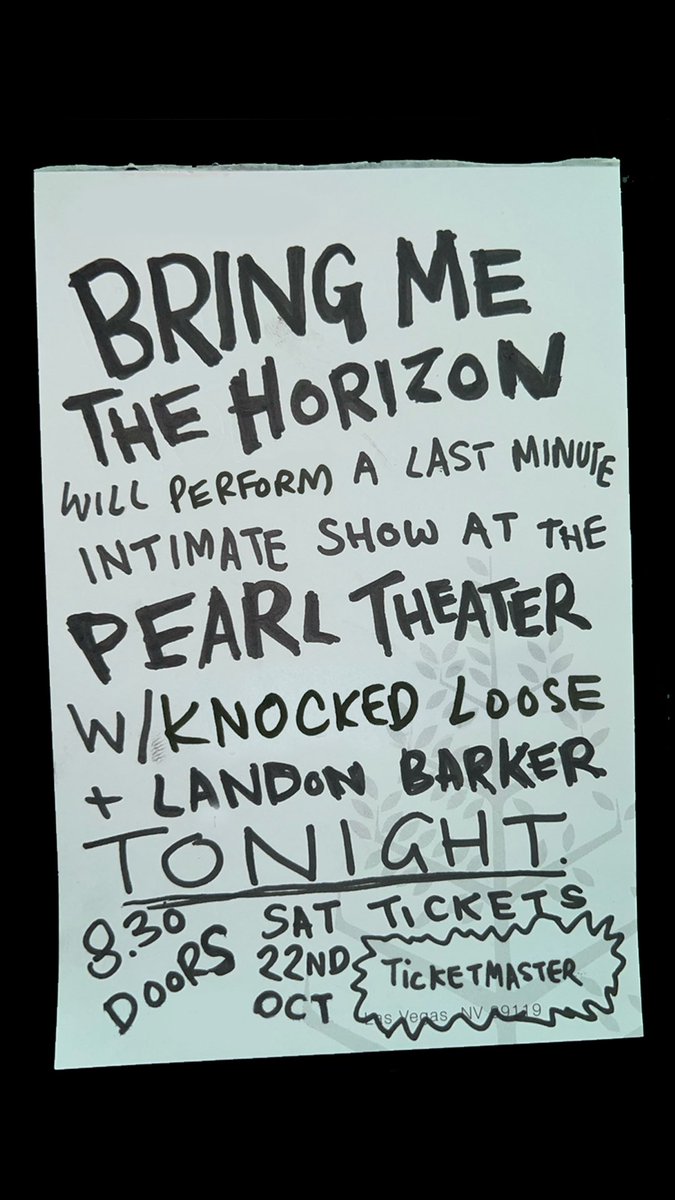 BRING ME
THE HORIZON
WILL PERFORM A LAST MINUTE
INTIMATE SHOW AT THE
PEARL THEATER
W/KNOCKED LOOSE
+ LANDON BARKER
TONIGHT.
8.30
DOORS
SAT
22ND
OCT
TICKETS
TICKETMASTER
Las Vegas, NV 89119